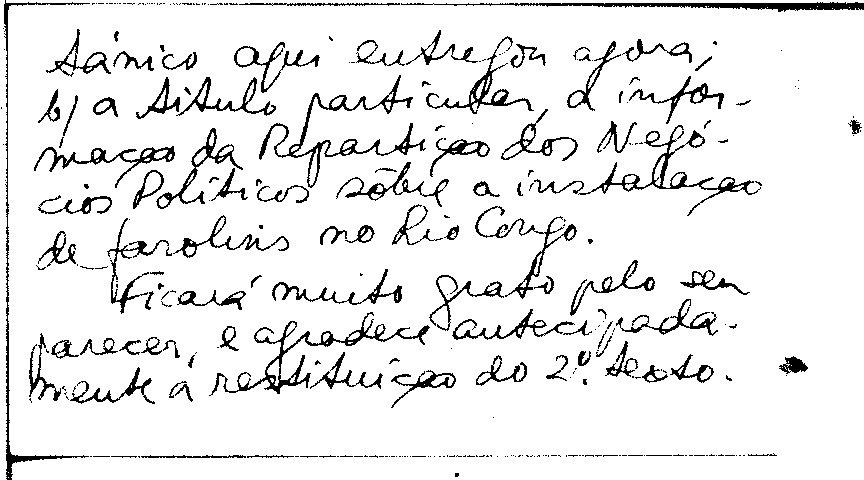 tánico aqui entregou agora;
b) a titulo particular, a infor-
mação da Repartição dos Negó-
cios Políticos sôbre a instalação
de farolins no Rio Congo.
Ficará muito grato pelo seu
parecer, e agradece antecipada-
mente a restituição do 2º. texto.